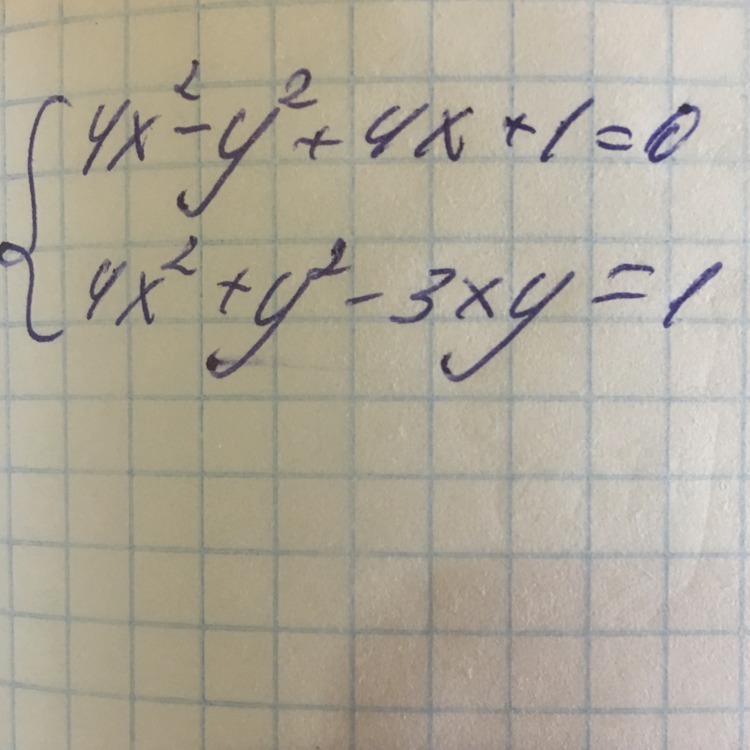 4x² - y² + 4x + 1 = 0
4x² + y² - 3xy = 1